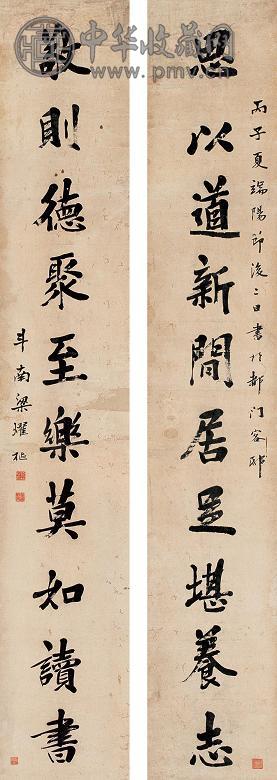 中华收藏网
www.pmv.cn
丙子夏端陽節後二日書於都門客邸
思以道新閒居足堪養志
敬則德聚至樂莫如讀書
斗南梁耀枢